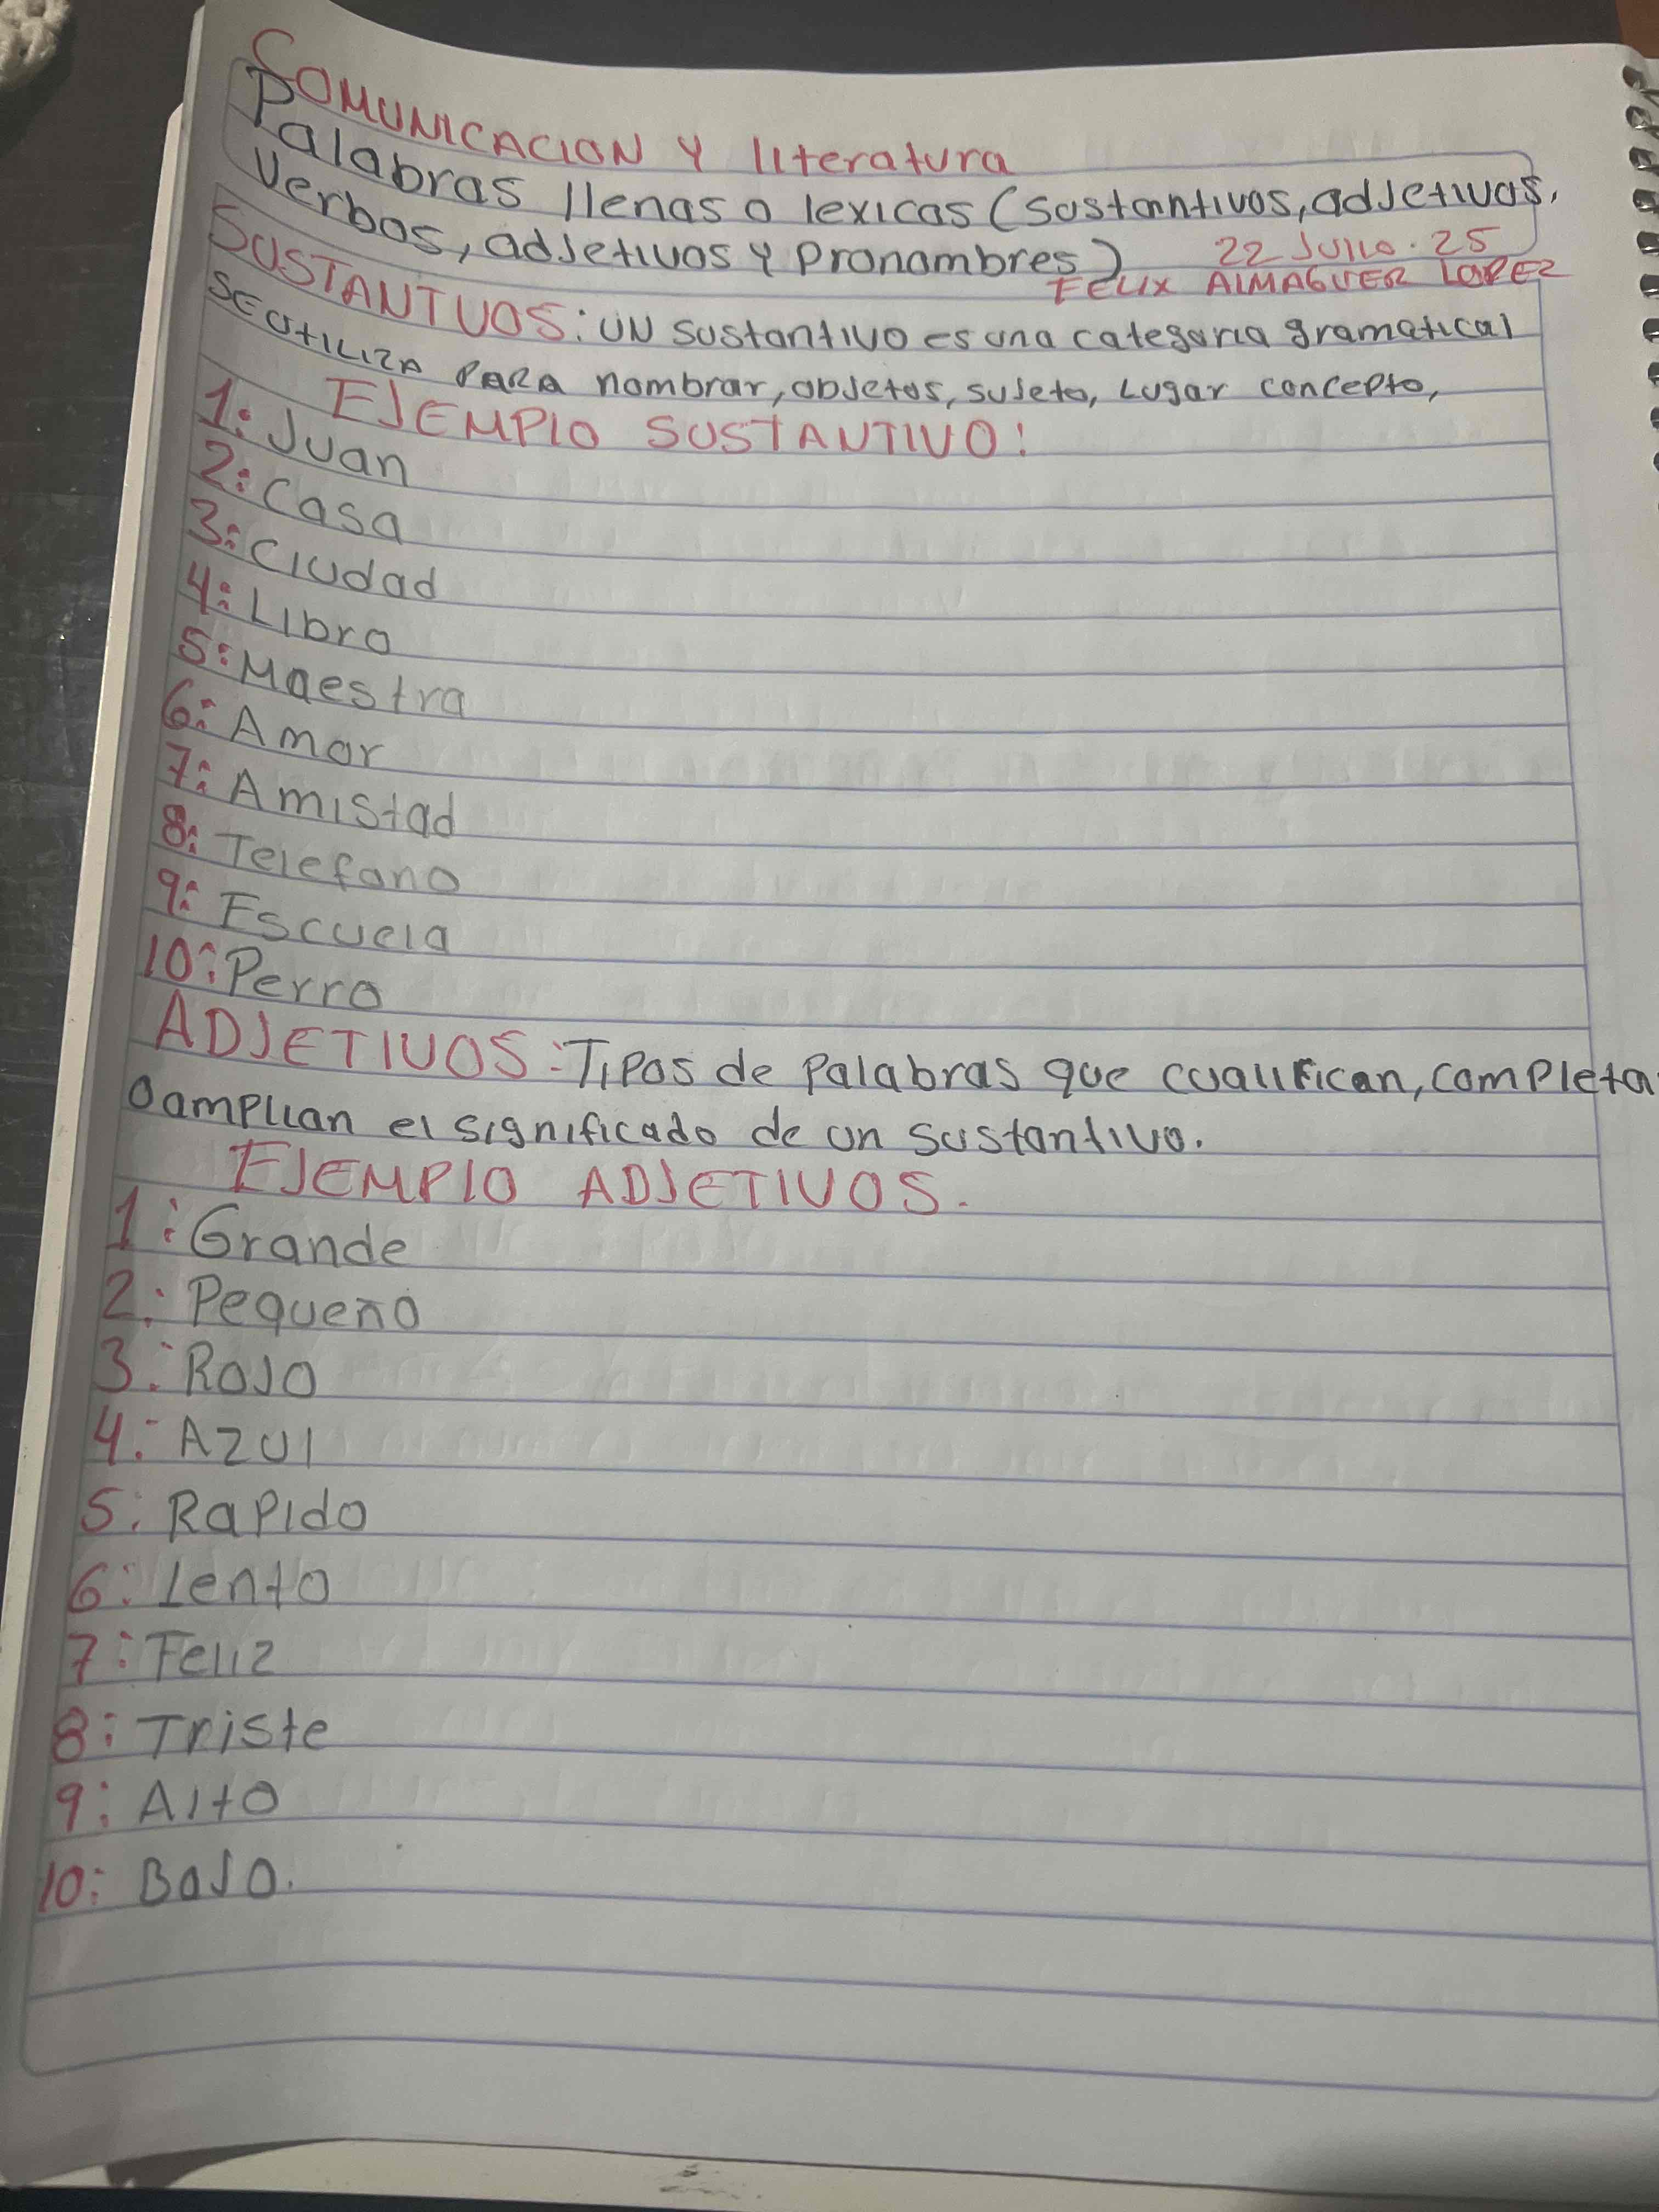 COMUNICACION Y literatura
Palabras llenas o lexicas (sustanntivos, adjetivos,
Verbos, adjetivos y pronombres)
22 Julio. 25
FELIX ALMAGUER LOPEZ
SUSTANTVOS: UN sustantivo es una categoria gramatical
SE UTILIZA PARA nombrar, objetos, sujeto, Lugar concepto,
EJEMPlO SUSTANTIVO:
1: Juan
2: Casa
3: Ciudad
4: Libro
5: Maestra
6: Amor
7: Amistad
8: Telefono
9: Escuela
10: Perro
ADJETIVOS: Tipos de palabras que cualifican, completa
o amplian el significado de un sustantivo.
EJEMPlO ADJETIVOS.
1: Grande
2: Pequeño
3: Rojo
4: AZUl
5: Rapido
6: Lento
7: Feliz
8: Triste
9: Alto
10: Bajo.